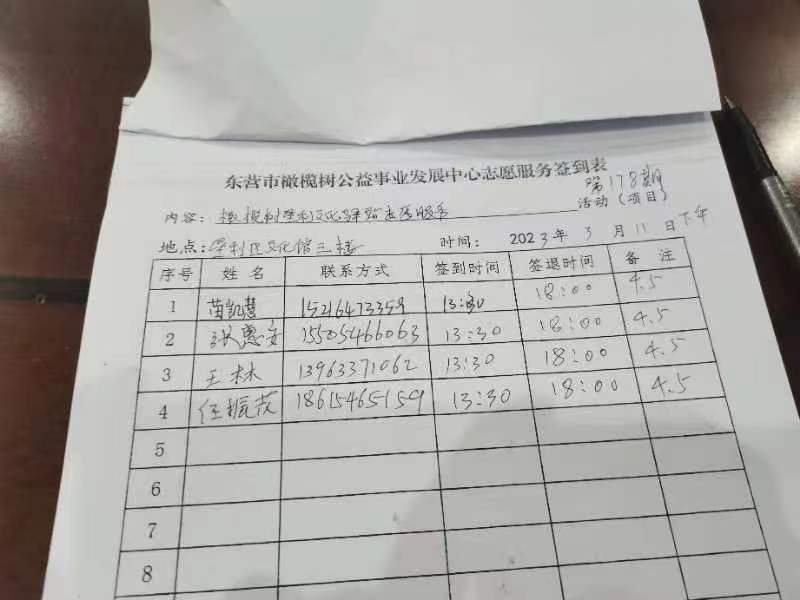 东营市橄榄树公益事业发展中心志愿服务签到表
第178期
内容：橄榄树垦利文化驿站志愿服务 活动（项目）
地点：垦利区文化馆三楼 时间：2023年3月11日下午
序号 姓名 联系方式 签到时间 签退时间 备注
1 苗凯慧 15216473359 13:30 18:00 4.5
2 张惠安 15505466063 13:30 18:00 4.5
3 王林 13963371062 13:30 18:00 4.5
4 任振茂 18615465159 13:30 18:00 4.5
5
6
7
8